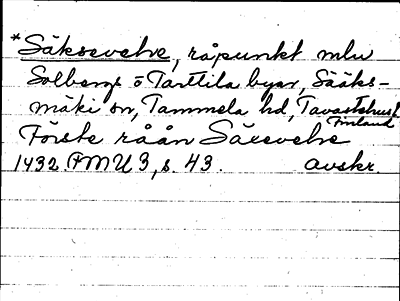 *Säksevelve, råpunkt mlu
Solbergs o Tarttila byar, Sääks-
mäki sn, Tammela hd, Tavastehus l
Finland
Förste råån Säxevelve
1432. FMU 3, s. 43. avskr.